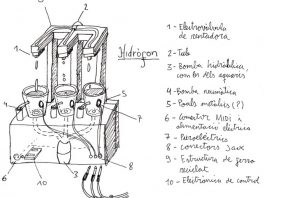 Hidrògon
1 - Electrovàlvula
de rentadora
2 - Tub
3 - Bomba hidràulica,
com les dels aquaris
4 - Bomba neumàtica
5 - Poals metàl·lics (?)
6 - Conector MIDI i
alimentació elèctrica
7 - Piezoelèctrics
8 - conectors Jack
9 - Estructura de ferro
reciclat
10 - Electrònica de control
2
1
9
4
5
7
6
10
3
8